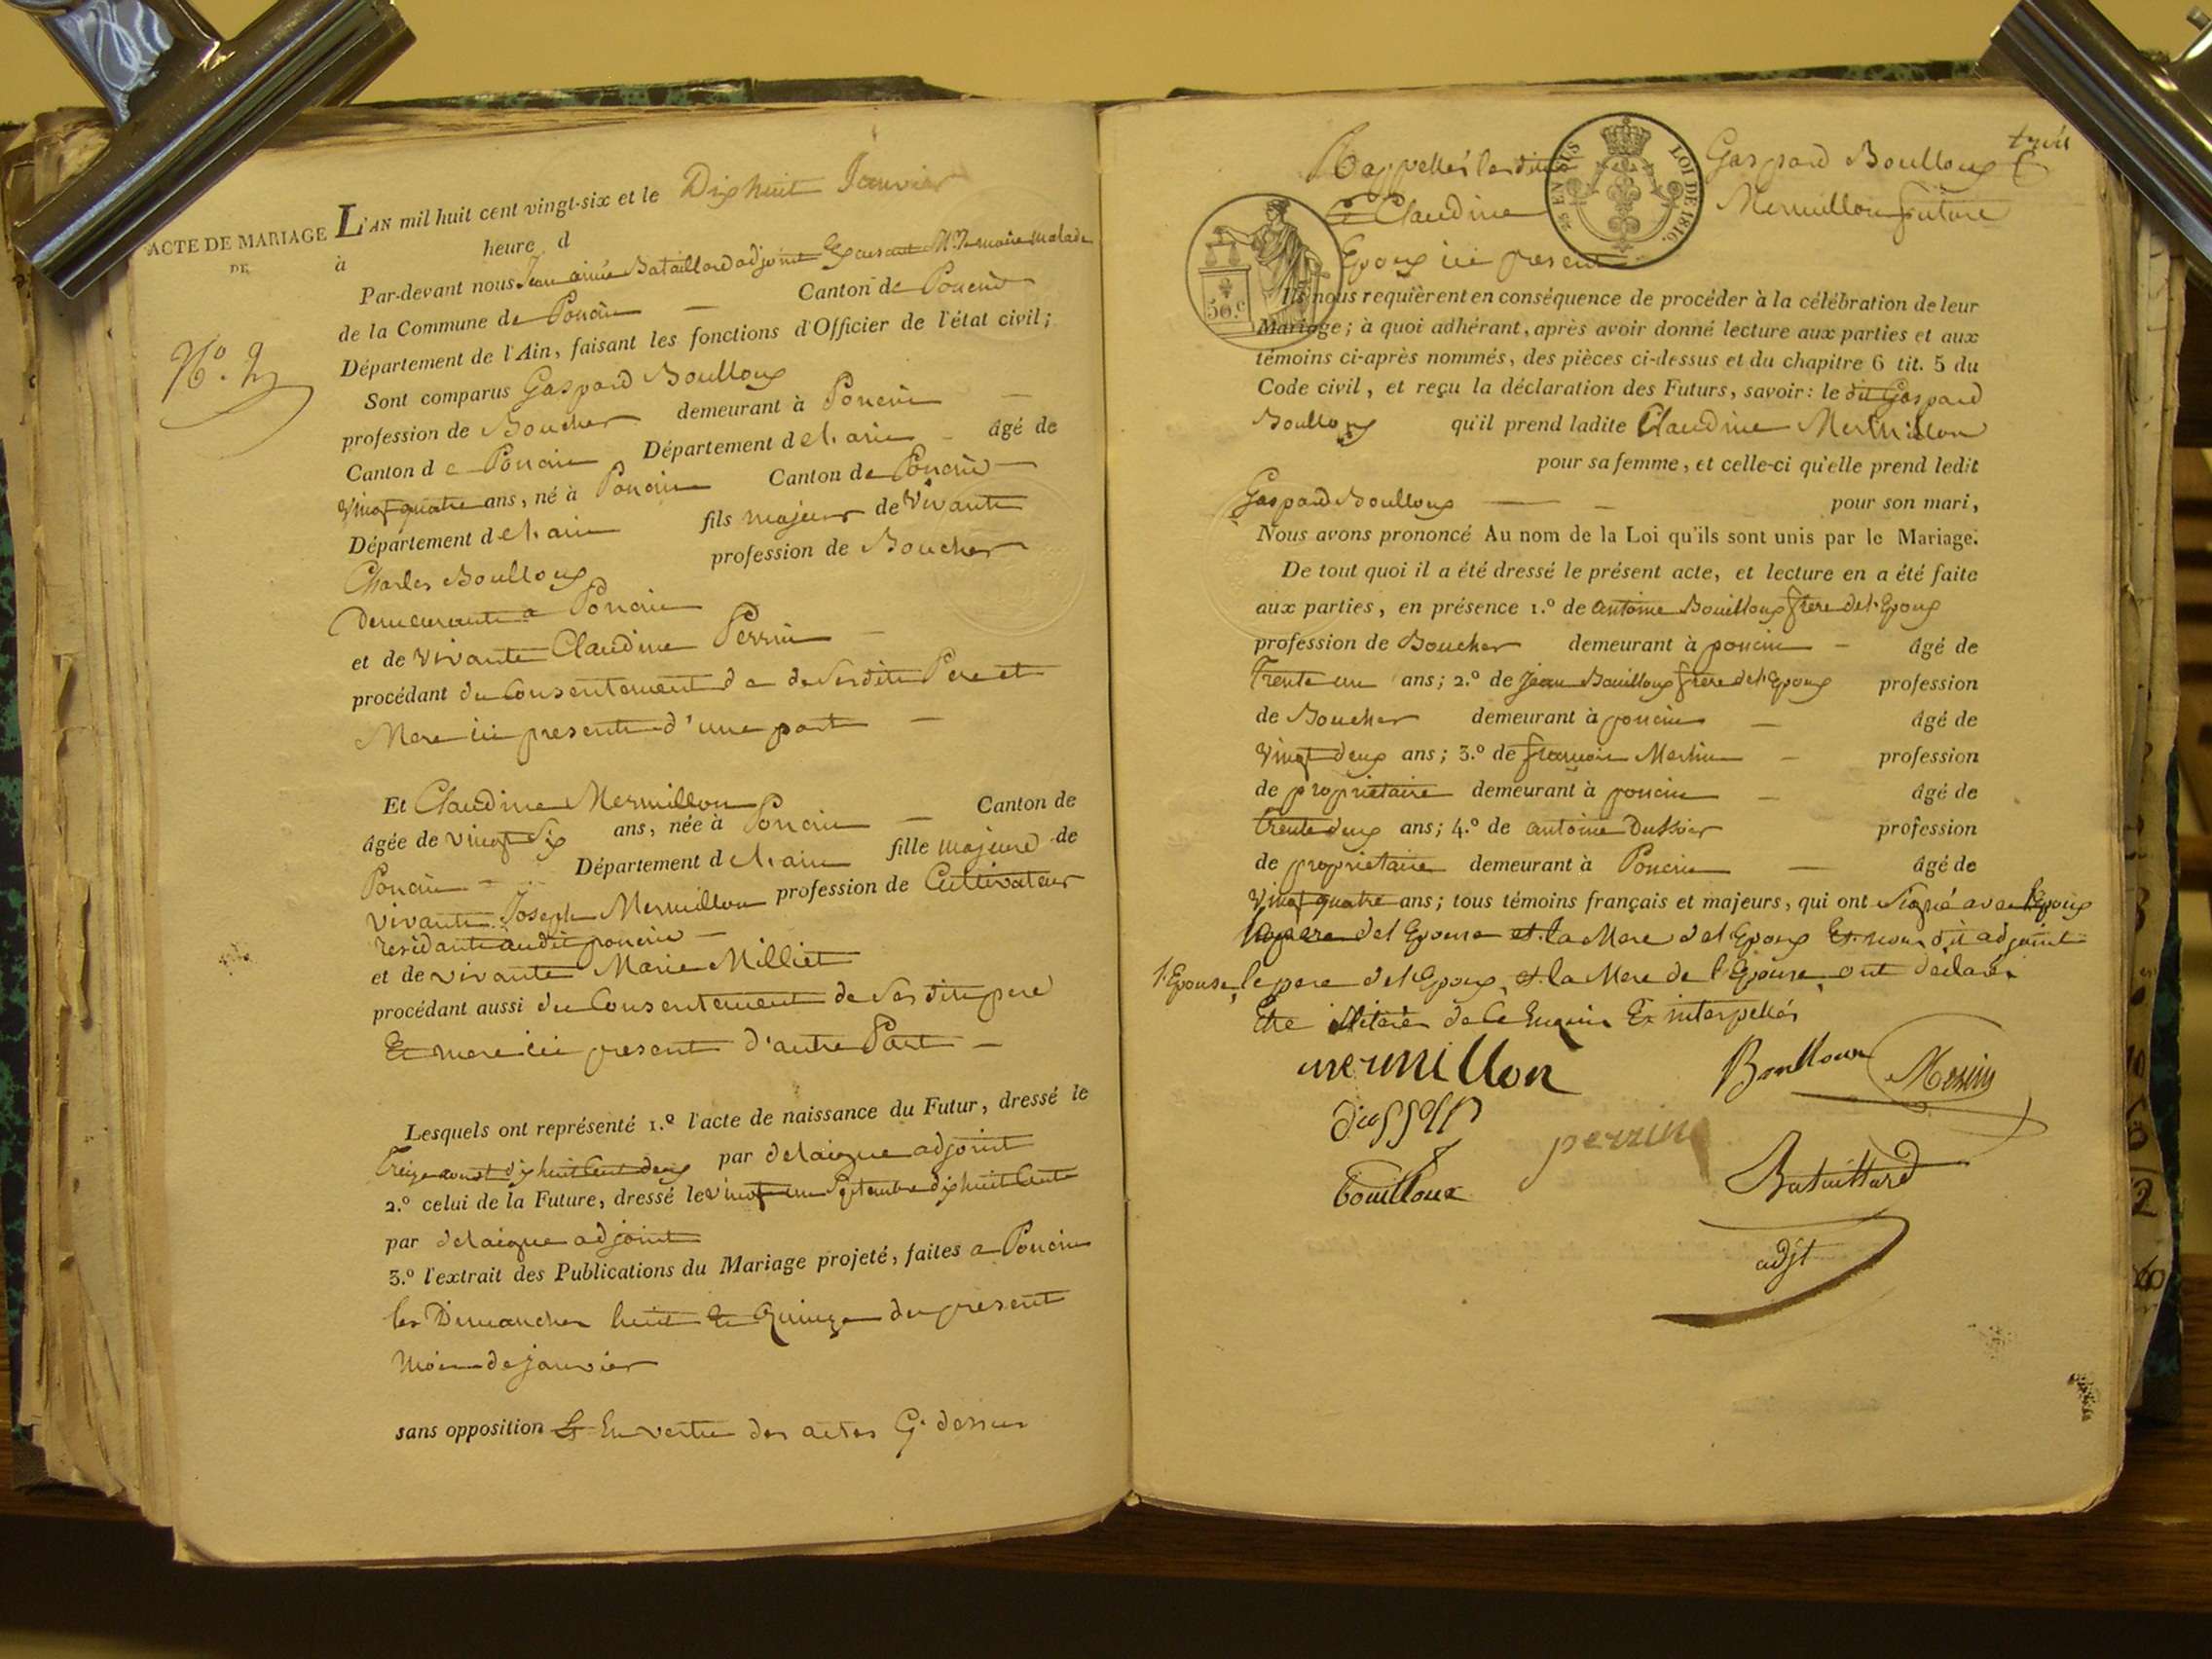 ACTE DE MARIAGE
DE
N.º 2
L'AN mil huit cent vingt-six et le Dix huit Janvier
à heure d
Par-devant nous Jean aimé Bataillard adjoint Exerçant Mr le maire malade
de la Commune de Poncin Canton de Poncin
Département de l'Ain, faisant les fonctions d'Officier de l'état civil;
Sont comparus Gaspard Boulloux
profession de Boucher demeurant à Poncin
Canton de Poncin Département de l'ain âgé de
vingt quatre ans, né à Poncin Canton de Poncin
Département de l'ain fils majeur de vivante
Charles Boulloux profession de Boucher
Demeurante a Poncin
et de vivante Claudine Perrin
procédant du Consentement de de ses dits Pere et
Mere ici presente d'une part
Et Claudine Mermillon
âgée de vingt six ans, née à Poncin Canton de
Poncin Département de l'ain fille majeure de
vivante Joseph Mermillon profession de Cultivateur
residante audit poncin
et de vivante Marie Milliet
procédant aussi du Consentement de ses dits pere
Et mere ici present d'autre Part
Lesquels ont représenté 1.º l'acte de naissance du Futur, dressé le
Treize aoust dix huit Cent deux par delaigue adjoint
2.º celui de la Future, dressé le vingt un Septembre dix huit Cent
par delaigue adjoint
3.º l'extrait des Publications du Mariage projeté, faites a Poncin
les Dimanches huit Et Quinze du present
Mois de janvier
sans opposition Et En vertu des actes Cy dessus
trois
Rappellés lesdits Gaspard Boulloux
Et Claudine Mermillon future
Epoux ici present
25 EN SUS LOI DE 1816.
50.c
Ils nous requièrent en conséquence de procéder à la célébration de leur
Mariage; à quoi adhérant, après avoir donné lecture aux parties et aux
témoins ci-après nommés, des pièces ci-dessus et du chapitre 6 tit. 5 du
Code civil, et reçu la déclaration des Futurs, savoir: le dit Gaspard
Boulloux qu'il prend ladite Claudine Mermillon
pour sa femme, et celle-ci qu'elle prend ledit
Gaspard Boulloux pour son mari,
Nous avons prononcé Au nom de la Loi qu'ils sont unis par le Mariage.
De tout quoi il a été dressé le présent acte, et lecture en a été faite
aux parties, en présence 1.º de antoine Bouilloux frere de l'Epoux
profession de Boucher demeurant à poncin âgé de
Trente un ans; 2.º de jean Bouilloux frere de l'Epoux profession
de Boucher demeurant à poncin âgé de
vingt deux ans; 3.º de françois Merlin profession
de propriétaire demeurant à poncin âgé de
trente deux ans; 4.º de antoine Dussier profession
de propriétaire demeurant à Poncin âgé de
vingt quatre ans; tous témoins français et majeurs, qui ont Signé avec l'Epoux
le pere de l'Epouse et la Mere de l'Epoux Et nous dit adjoint
l'Epouse, le pere de l'Epoux, et la Mere de l'Epouse, ont déclaré
Etre illiterés de Ce Enquis Et interpellés
mermillon Boulloux
perrin
bouilloux Bataillard
adjt